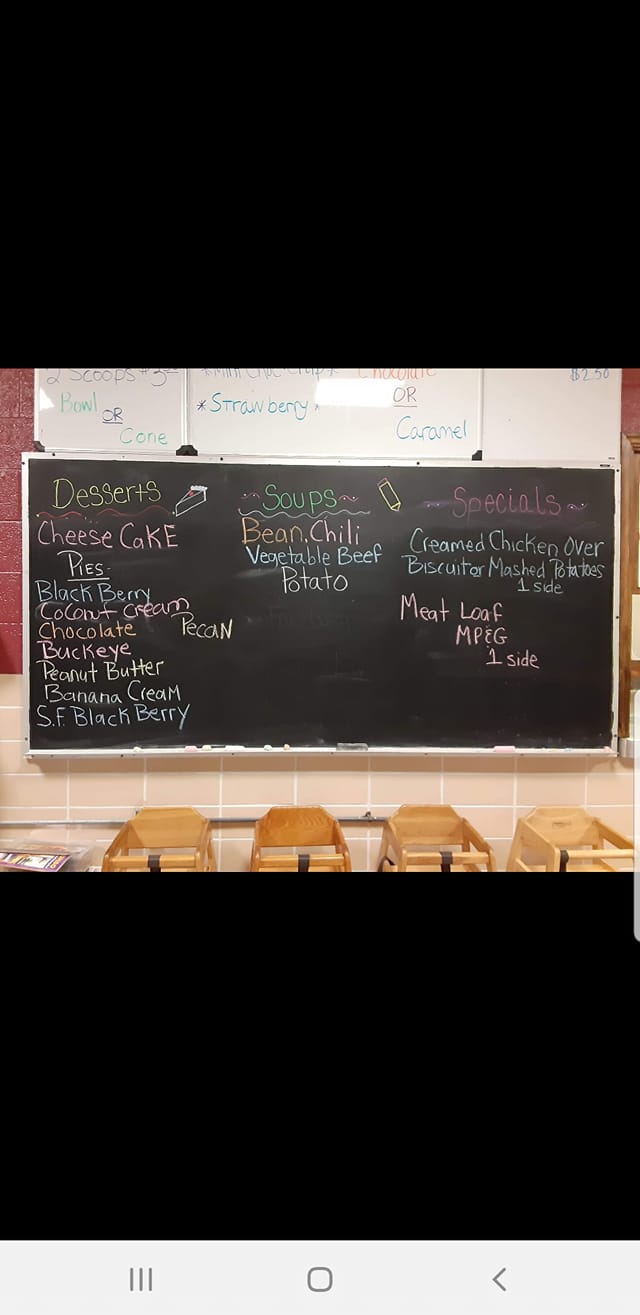 2 Scoops $3
Bowl
OR
Cone
*Mini Choc Chip*
*Strawberry*
Chocolate
OR
Caramel
$2.50
Desserts
Cheese Cake
Pies
Black Berry
Coconut Cream
Chocolate Pecan
Buckeye
Peanut Butter
Banana Cream
S.F. Black Berry
Soups
Bean, Chili
Vegetable Beef
Potato
Specials
Creamed Chicken Over
Biscuit or Mashed Potatoes
1 side
Meat Loaf
MP&G
1 side